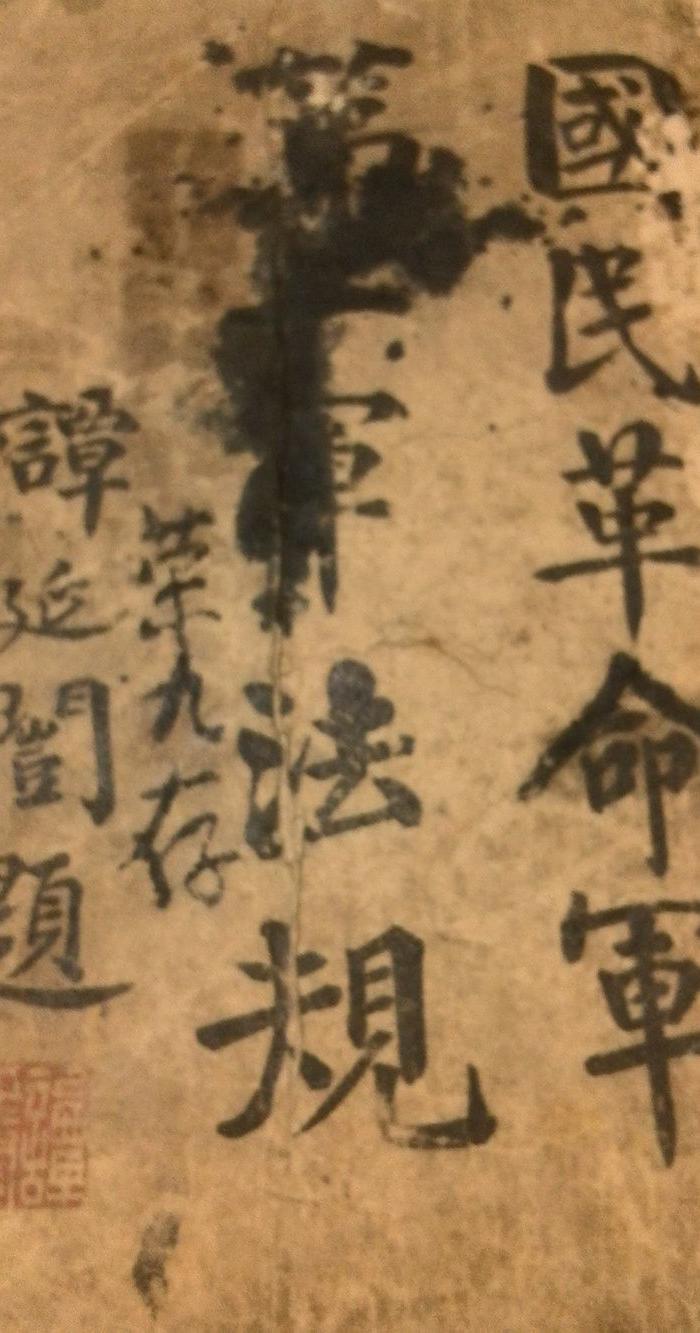 國民革命軍
軍法規
荣九存
譚延闓題